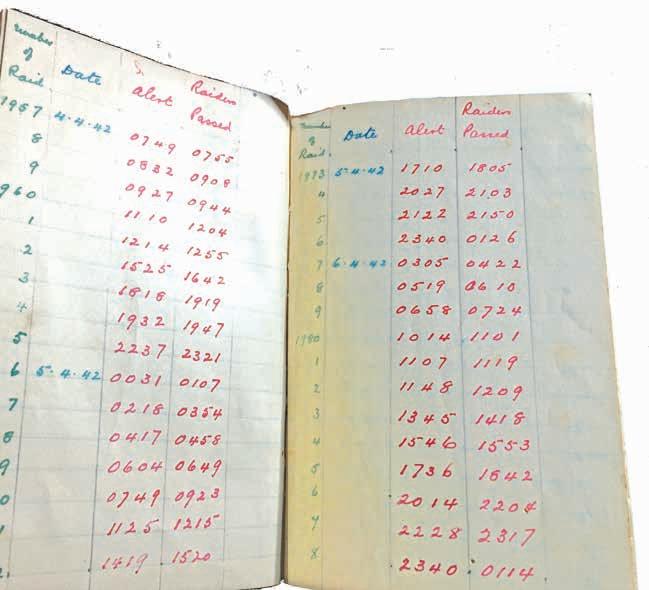 Number of Raid Date Alert Raiders Passed
1957 4.4.42 0749 0755
8 0832 0908
9 0927 0944
960 1110 1204
1 1214 1255
2 1525 1642
3 1818 1919
4 1932 1947
5 2237 2321
6 5.4.42 0031 0107
7 0218 0354
8 0417 0458
9 0604 0649
0 0749 0923
1 1125 1215
2 1419 1520
Number of Raid Date Alert Raiders Passed
1973 5.4.42 1710 1805
4 2027 2103
5 2122 2150
6 2340 0126
7 6.4.42 0305 0422
8 0519 0610
9 0658 0724
1980 1014 1101
1 1107 1119
2 1148 1209
3 1345 1418
4 1546 1553
5 1736 1842
6 2014 2204
7 2228 2317
8 2340 0114